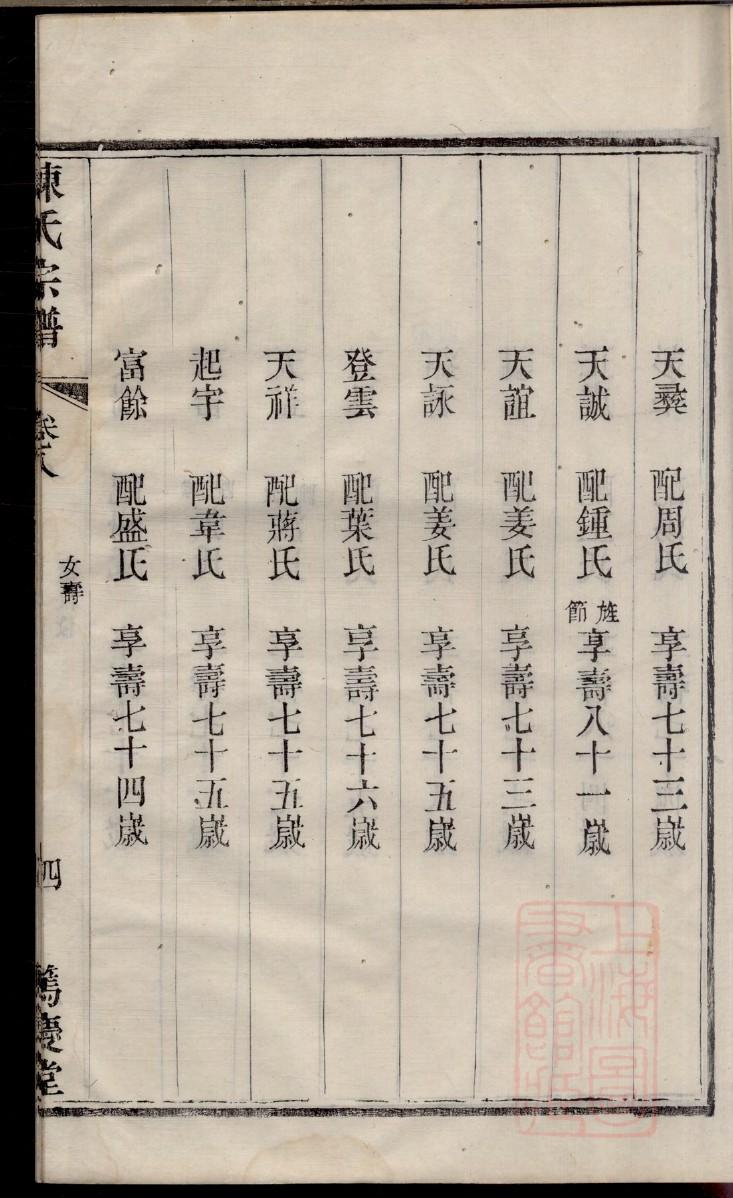 天彞　配周氏　享壽七十三歲
天誠　配鍾氏　旌節　享壽八十一歲
天誼　配姜氏　享壽七十三歲
天詠　配姜氏　享壽七十五歲
登雲　配葉氏　享壽七十六歲
天祥　配蔣氏　享壽七十五歲
起宇　配韋氏　享壽七十五歲
富餘　配盛氏　享壽七十四歲
陳氏宗譜　卷八　女壽　四　篤慶堂
上海圖書館藏